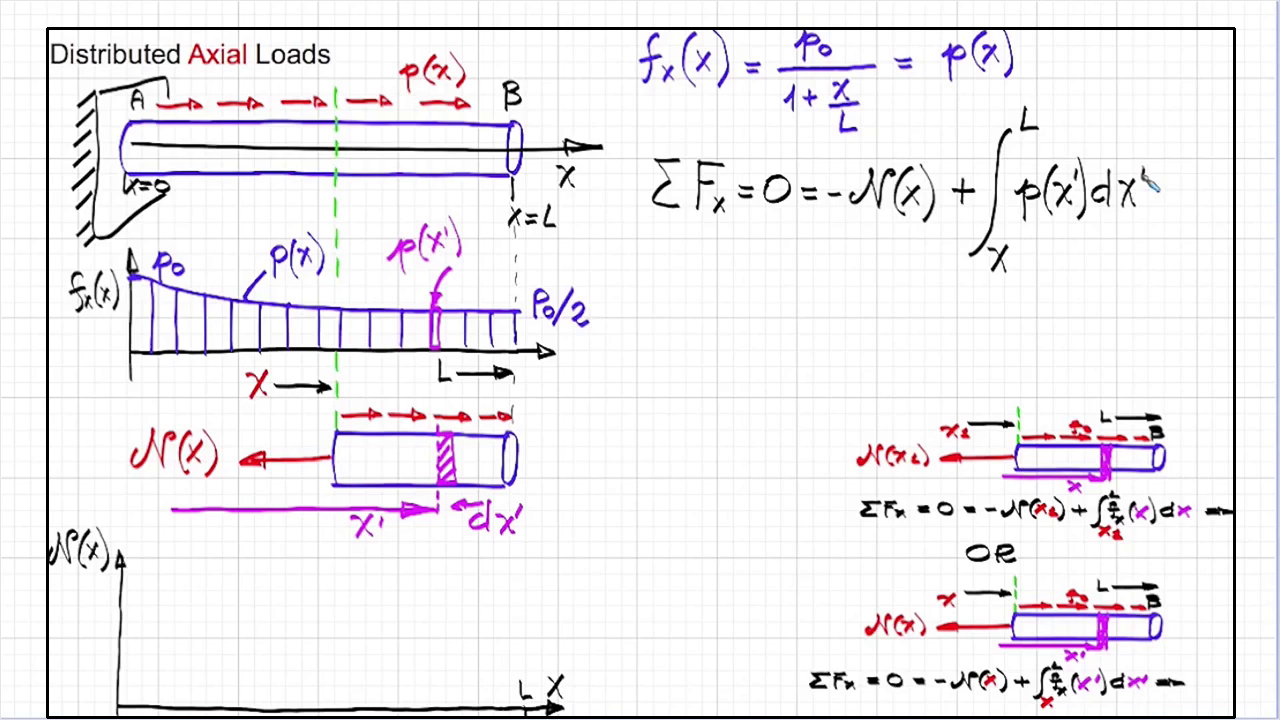 Distributed Axial Loads
A p(x) B
x=0 x
x=L
fx(x) p0 p(x) p(x') P0/2
x L
N(x)
x' dx'
N(x)
L x
fx(x) = p0 / (1 + x/L) = p(x)
ΣFx = 0 = -N(x) + ∫_x^L p(x')dx'
x1 L
B
N(x1)
x
ΣFx = 0 = -N(x1) + ∫_{x1}^L fx(x)dx ⇒
OR
x L
B
N(x)
x'
ΣFx = 0 = -N(x) + ∫_x^L fx(x')dx' ⇒